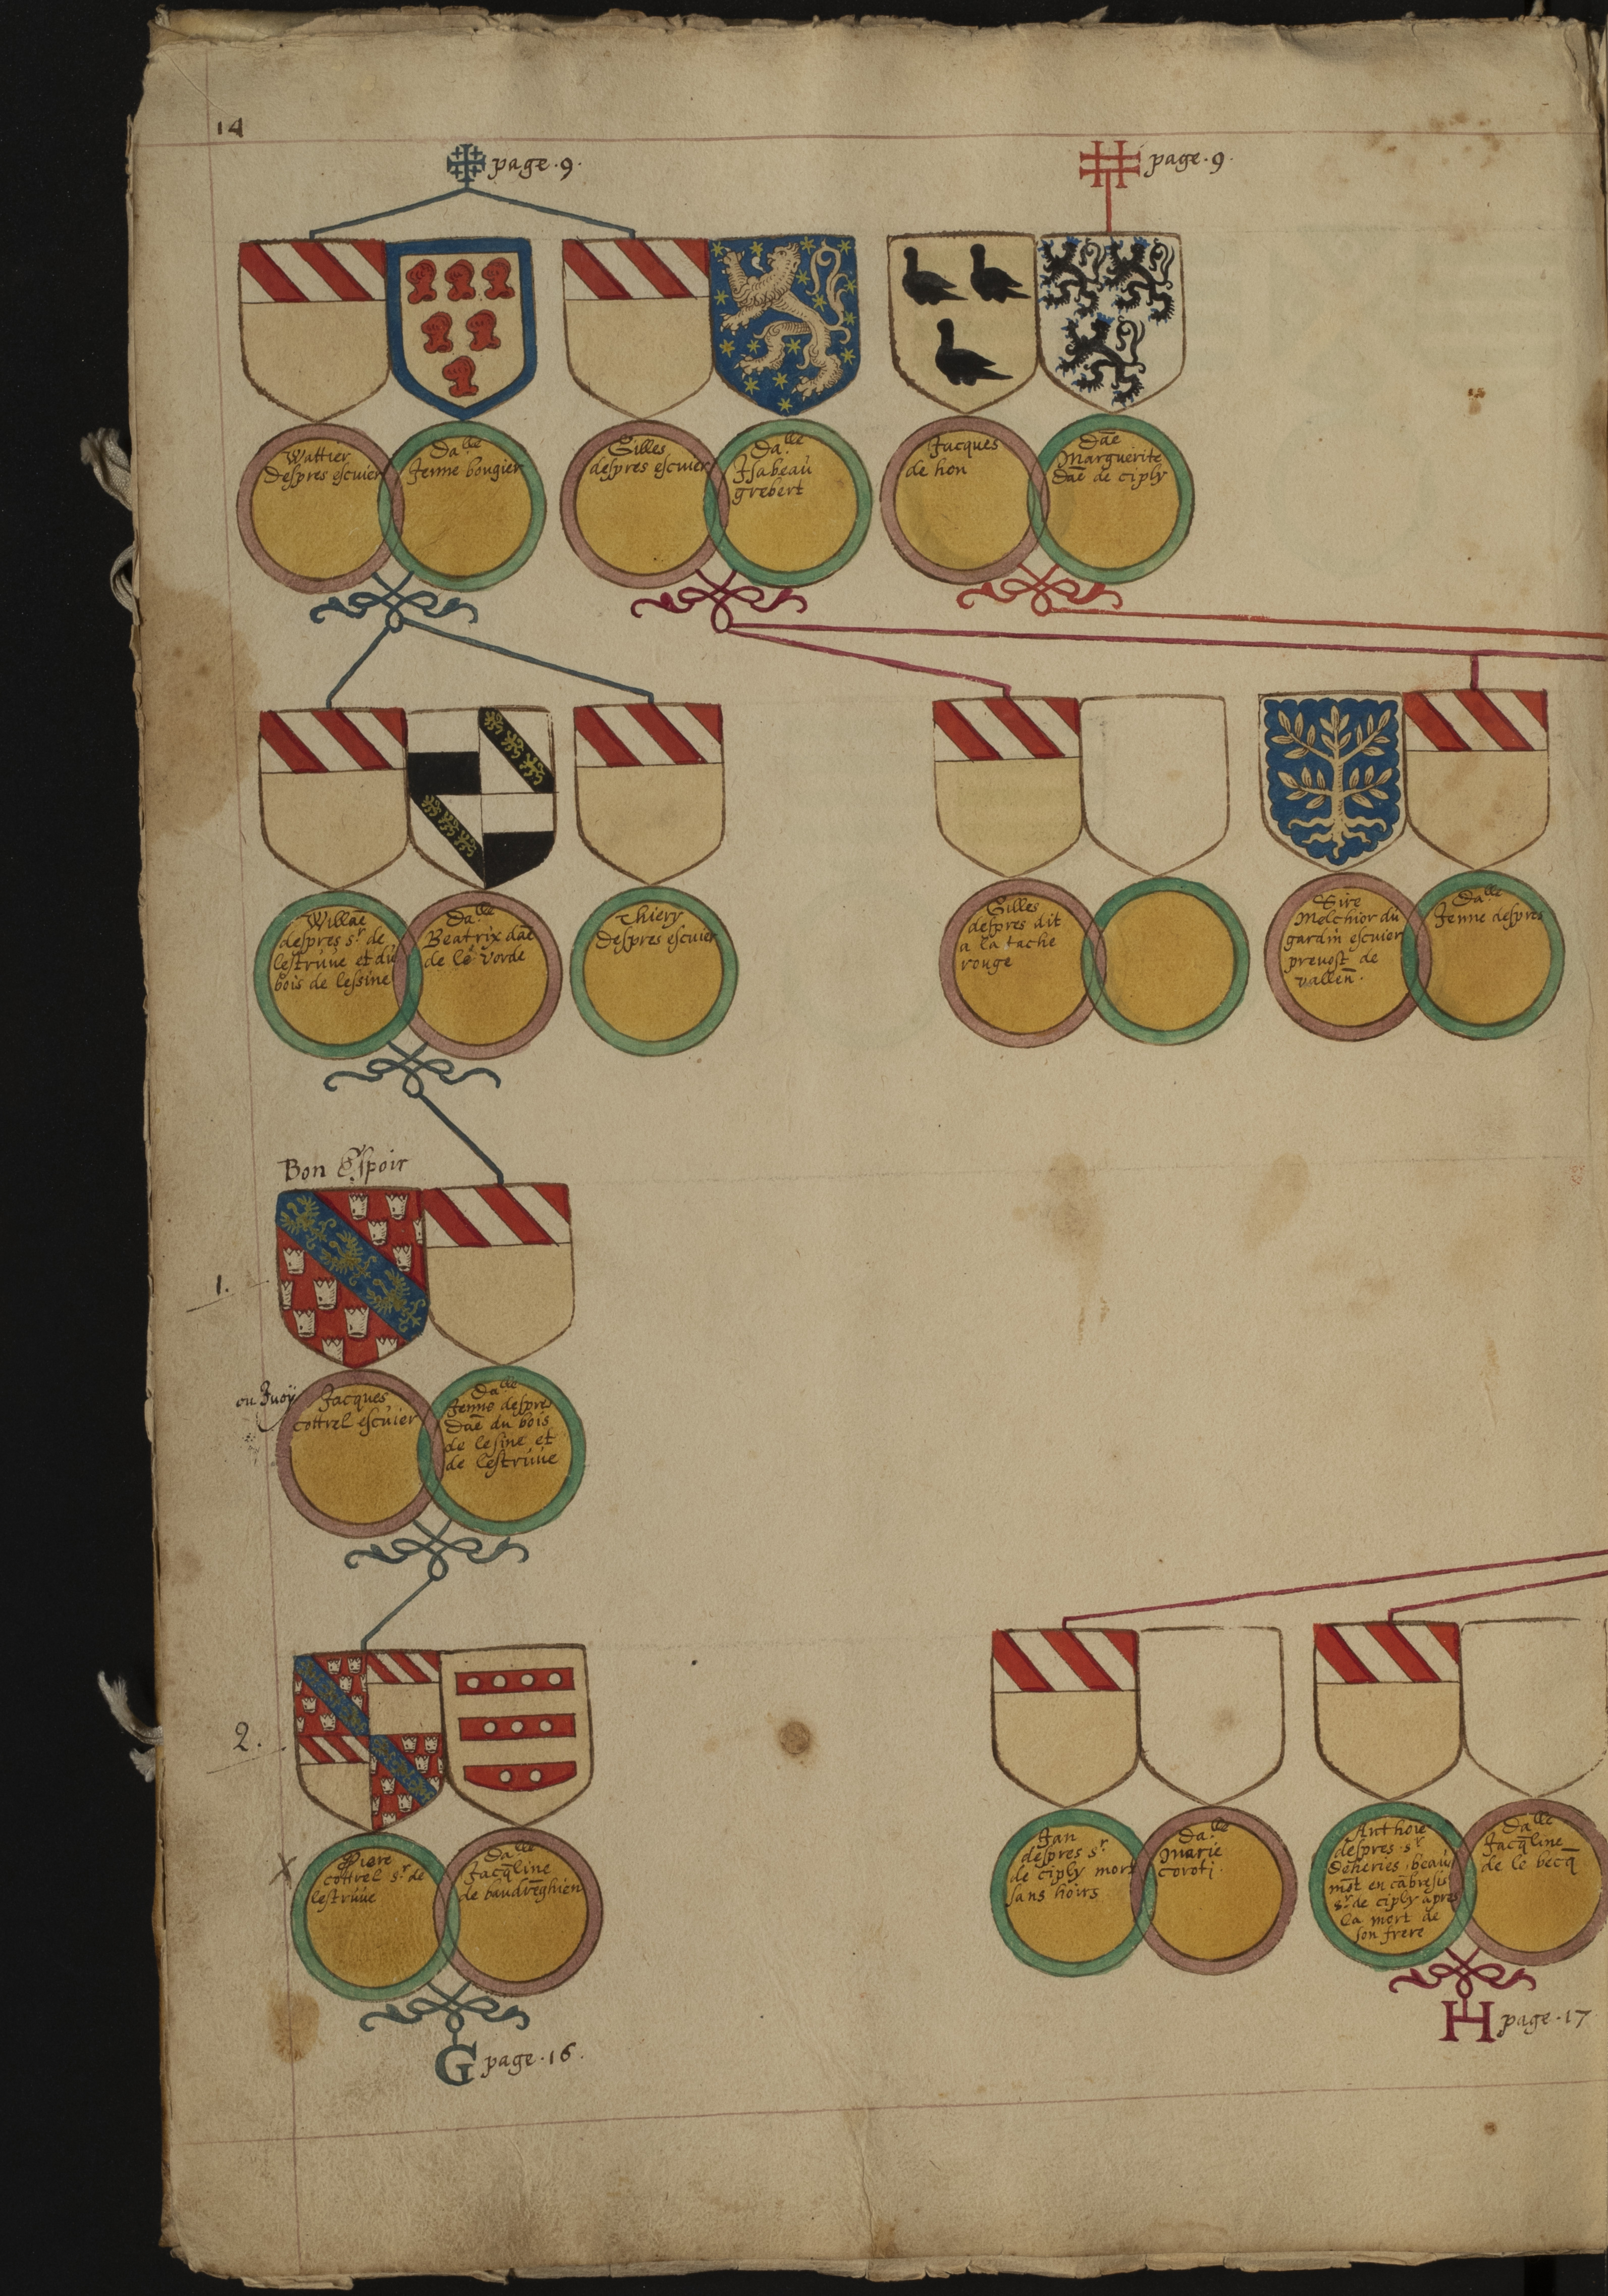 14
page·9·
page·9·
Wattier
despres escuier
Da.lle
Jenne bougier
Gilles
despres escuier
Da.lle
Jsabeau
grebert
Jacques
de hon
Dāe
Marguerite
dāe de ciply
Willāe
despres sr de
lestrúúe et dú
bois de lessine
Da.lle
Beatrix dāe
de le vorde
Thiery
despres escuier
Gilles
despres dit
a la tache
rouge
Sire
Melchior du
gardin escuier
prevost de
valleñ.
Da.lle
Jenne despres
Bon Espoir
1.
ou Juoÿ
Jacques
cottrel escúier
Dalle
Jenne despres
Dāe du bois
de lesine et
de lestrúúe
2.
X
Piere
cottrel sr de
lestrúúe
Dalle
Jacq̄line
de baudrēghien
Jan
despres sr
de ciply mort
sans hoirs
Da.lle
Marie
coroti
Anthoie
despres sr
deheries beaú
mōt en cābresis
sr de ciply apres
la mort de
son frere
Dalle
Jacq̄line
de le becq̄
G page·16·
H page·17